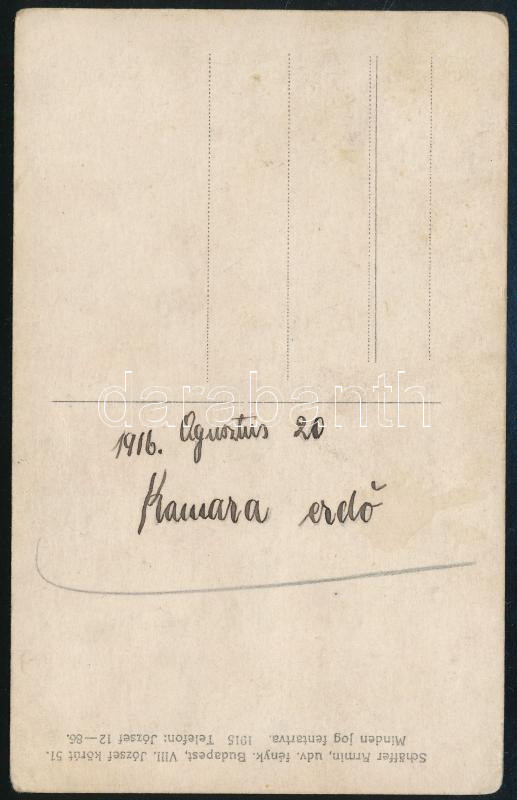 darabanth
1916. Agusztus 20
Kamara erdő
Schäffer Ármin, udv. fényk. Budapest, VIII. József körút 51.
Minden jog fentartva. 1915 Telefon: József 12—86.